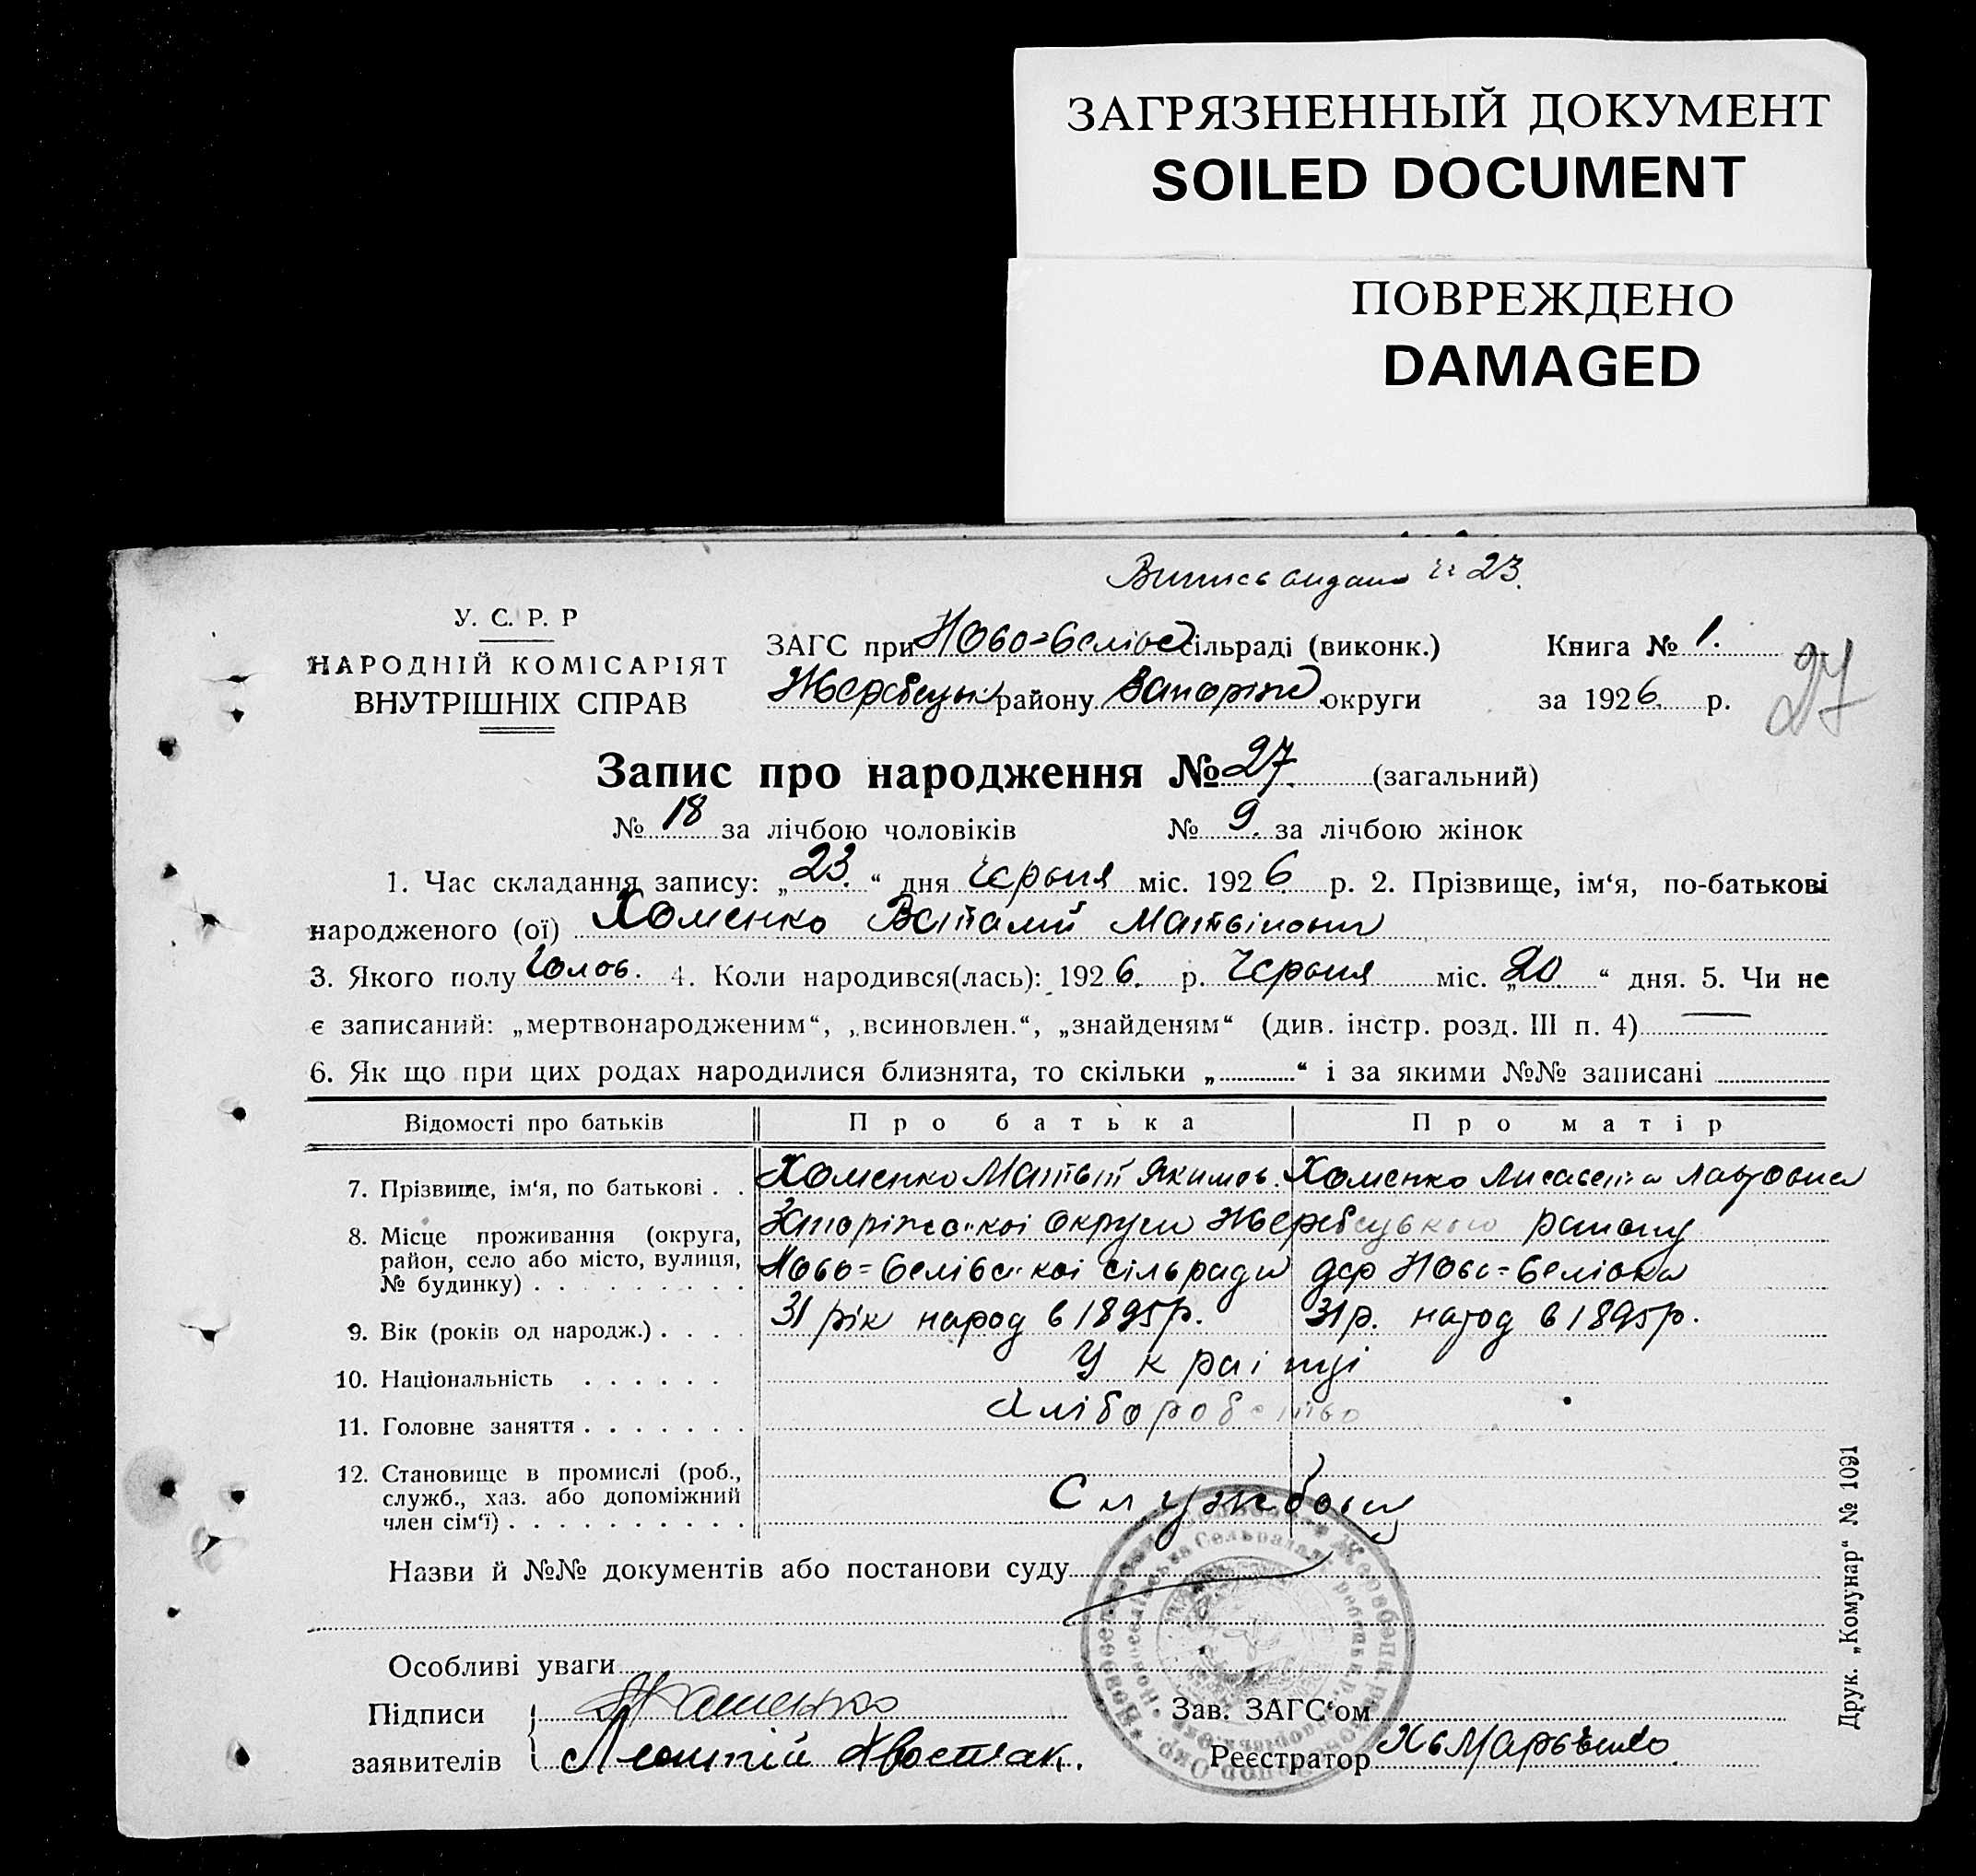 ЗАГРЯЗНЕННЫЙ ДОКУМЕНТ
SOILED DOCUMENT
ПОВРЕЖДЕНО
DAMAGED
Випись видано 23.
У. С. Р. Р
НАРОДНІЙ КОМІСАРІЯТ
ВНУТРІШНІХ СПРАВ
ЗАГС при Ново=Беліво сільраді (виконк.) Книга № 1.
Жеребецьк району Запоріж. округи за 1926 р.
27
Запис про народження № 27. (загальний)
№ 18 за лічбою чоловіків № 9. за лічбою жінок
1. Час складання запису: „23.“ дня Червня міс. 1926 р. 2. Прізвище, ім‘я, по-батькові
народженого (ої) Хоменко Віталий Матвійович
3. Якого полу Чолов. 4. Коли народився(лась): 1926. р. Червня міс. „20“ дня. 5. Чи не
є записаний: „мертвонародженим“, „всиновлен.“, „знайденям“ (див. інстр. розд. III п. 4)
6. Як що при цих родах народилися близнята, то скільки „ “ і за якими №№ записані
Відомості про батьків Про батька Про матір
7. Прізвище, ім‘я, по батькові . . Хоменко Матвій Якимов. Хоменко Лисавета
8. Місце проживання (округа, район, село або місто, вулиця, № будинку) . . . . . . . . . Запоріжської округи Жеребецького району
Ново=Белівської сільради дер Ново=Белівка
9. Вік (років од народж.) . . . . 31 рік народ в 1895р. 31р. народ в 1895р.
10. Національність . . . . . . Українці
11. Головне заняття . . . . . . . Хліборобство
12. Становище в промислі (роб., служб., хаз. або допоміжний член сім‘ї) . . . . . . . . . .
Назви й №№ документів або постанови суду
Особливі уваги
Підписи Хоменко Зав. ЗАГС‘ом
заявителів Хвостяк. Реєстратор
Друк. „Комунар“ № 1091